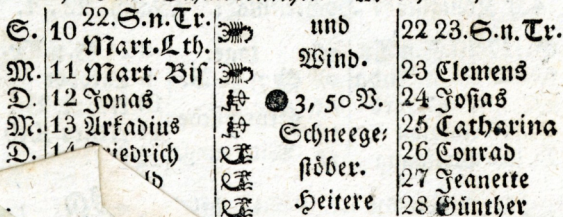 S. 10 22.S.n.Tr. Mart.Lth. und 22 23.S.n.Tr.
M. 11 Mart. Bis Wind. 23 Clemens
D. 12 Jonas 3, 50 V. 24 Josias
M. 13 Arkadius Schneege= 25 Catharina
D. 14 Friedrich stöber. 26 Conrad
27 Jeanette
Heitere 28 Günther